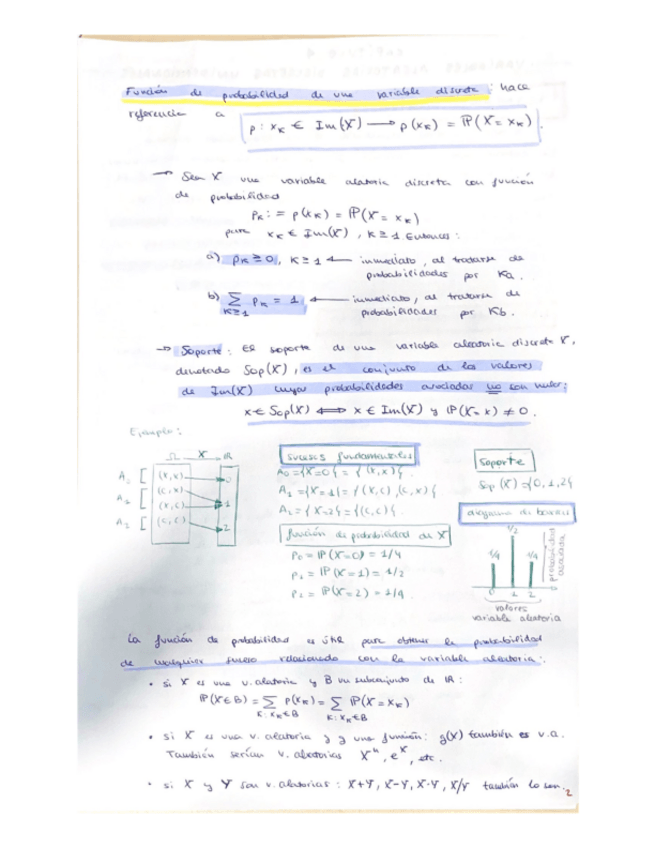 Función de probabilidad de una variable discreta: hace
referencia a p: xₖ ∈ Im(X) ⟶ p(xₖ) = ℙ(X = xₖ).
→ Sea X una variable aleatoria discreta con función
de probabilidad
pₖ := p(xₖ) = ℙ(X = xₖ)
para xₖ ∈ Im(X), K ≥ 1. Entonces:
a) pₖ ≥ 0, K ≥ 1 ← inmediato, al tratarse de
probabilidades por Ka.
b) ∑ pₖ = 1 ← inmediato, al tratarse de
K≥1 probabilidades por Kb.
→ Soporte: El soporte de una variable aleatoria discreta X,
denotado Sop(X), es el conjunto de los valores
de Im(X) cuyas probabilidades asociadas no son nulas:
x ∈ Sop(X) ⟺ x ∈ Im(X) y ℙ(X = x) ≠ 0.
Ejemplo:
Ω X ℝ
A₀ [ (x,x) 0
A₁ [ (c,x) (x,c) 1
A₂ [ (c,c) 2
sucesos fundamentales
A₀ = {X=0} = {(x,x)}.
A₁ = {X=1} = {(x,c), (c,x)}
A₂ = {X=2} = {(c,c)}.
función de probabilidad de X
p₀ = ℙ(X=0) = 1/4
p₁ = ℙ(X=1) = 1/2
p₂ = ℙ(X=2) = 1/4
soporte
Sop (X) = {0, 1, 2}
diagrama de barras
1/4 1/2 1/4
0 1 2
probabilidad asociada
valores
variable aleatoria
La función de probabilidad es útil para obtener la probabilidad
de cualquier suceso relacionado con la variable aleatoria:
• si X es una v. aleatoria y B un subconjunto de ℝ:
ℙ(X∈B) = ∑ p(xₖ) = ∑ ℙ(X = xₖ)
K: xₖ∈B K: xₖ∈B
• si X es una v. aleatoria y g una función: g(X) también es v.a.
También serían v. aleatorias Xⁿ, eˣ, etc.
• si X y Y son v. aleatorias: X+Y, X-Y, X·Y, X/Y también lo son.
2